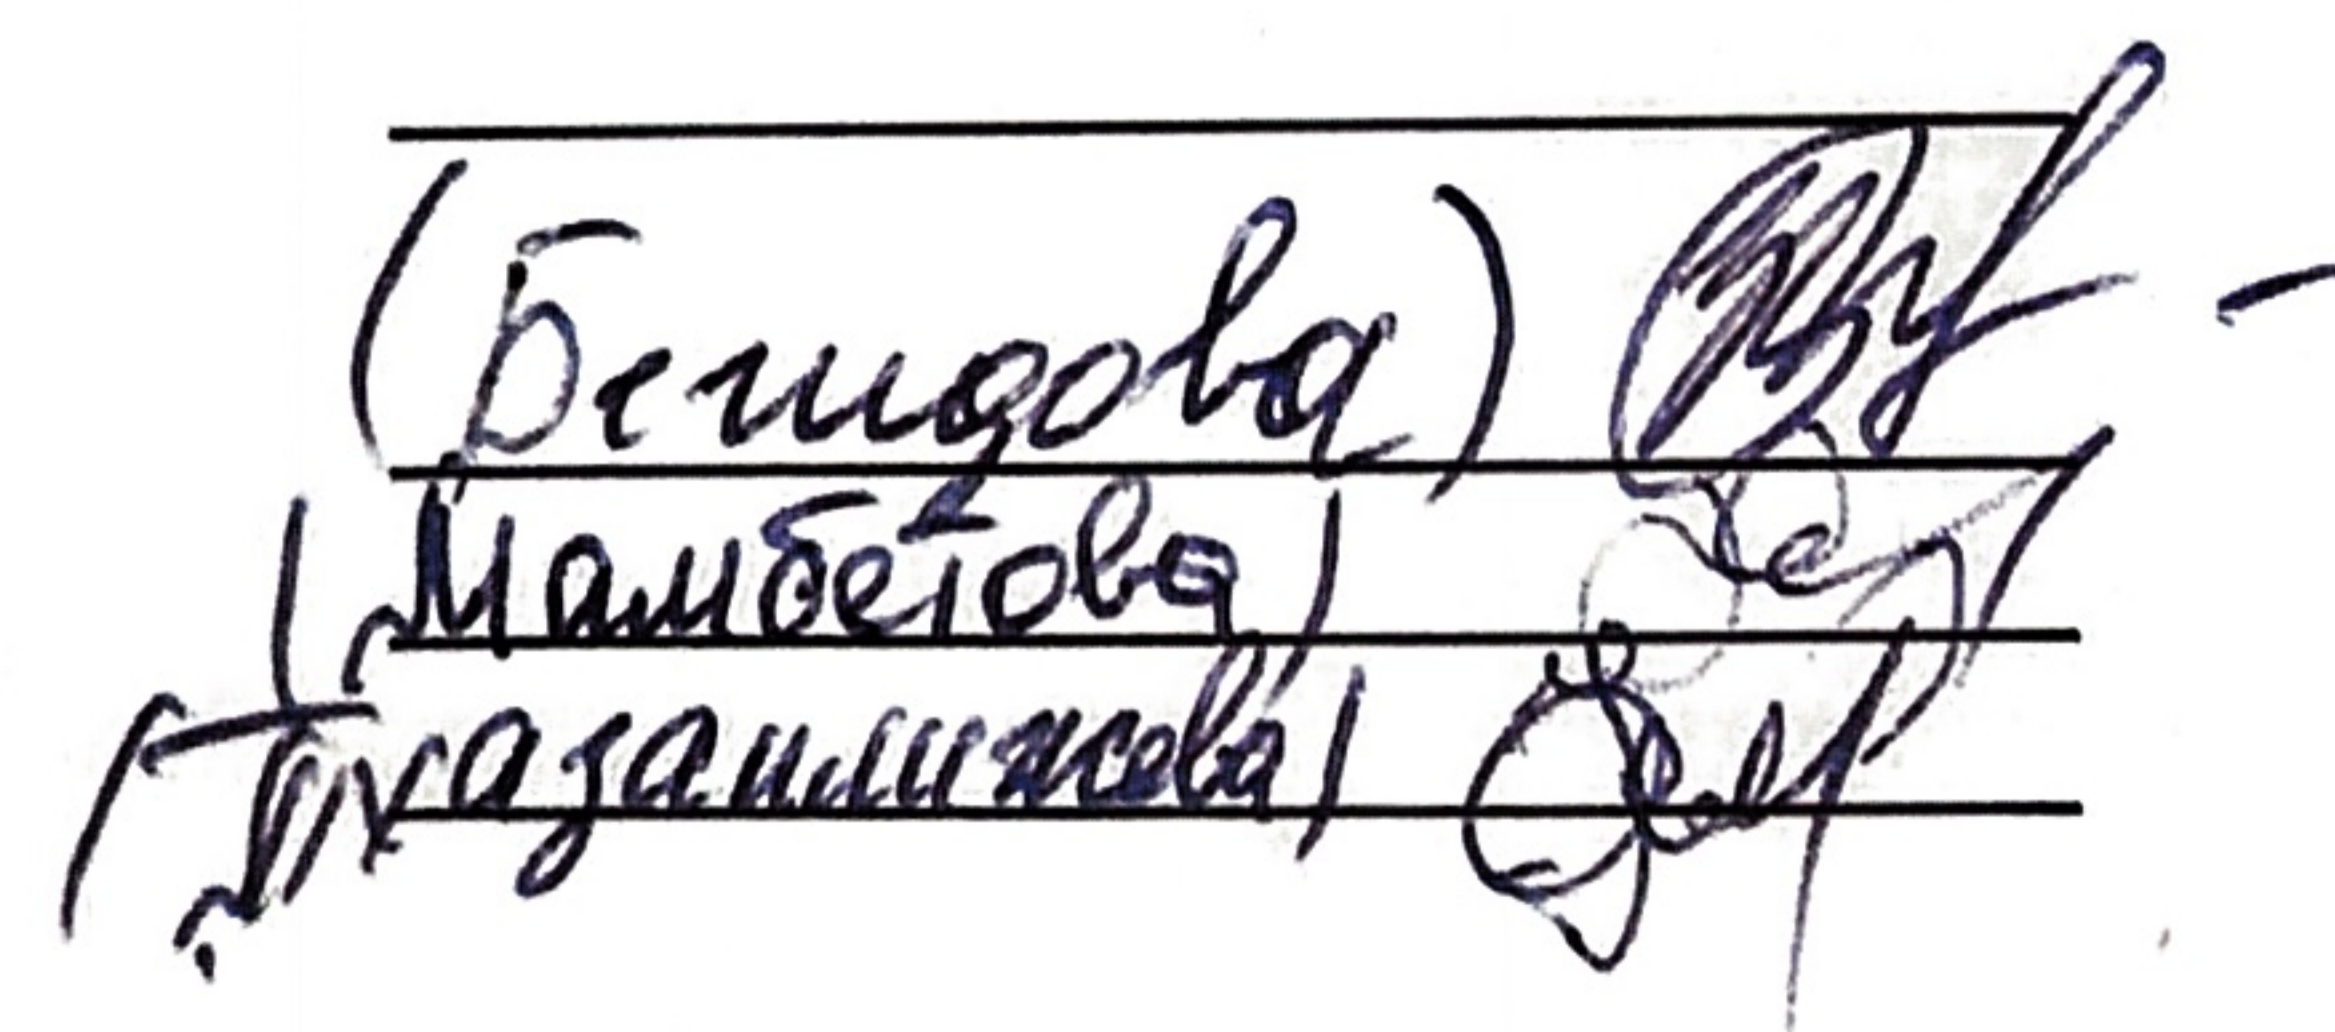 (Бешдова)
(Мамбетова)
(Тхазаплижева)